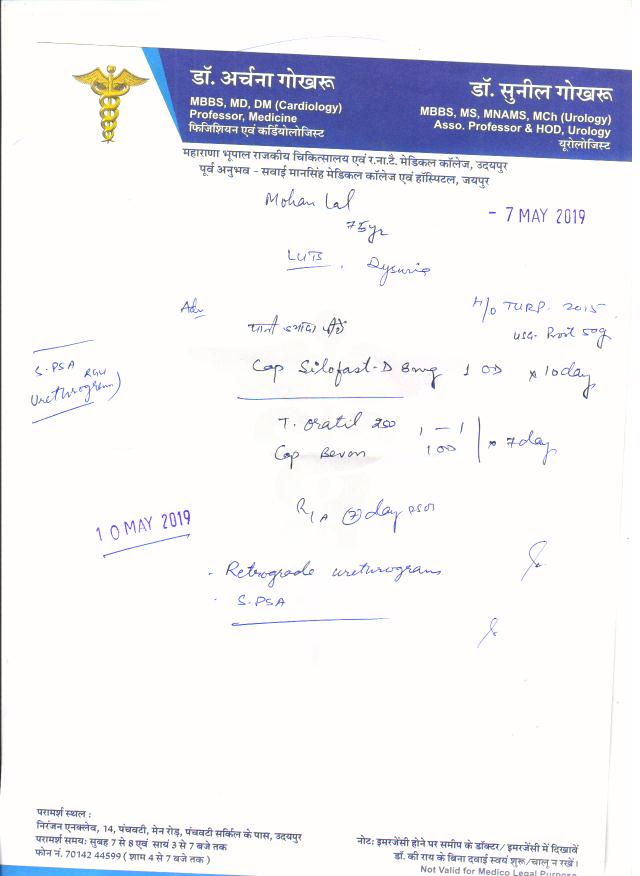 डॉ. अर्चना गोखरू
MBBS, MD, DM (Cardiology)
Professor, Medicine
फिजिशियन एवं कर्डियोलोजिस्ट
डॉ. सुनील गोखरू
MBBS, MS, MNAMS, MCh (Urology)
Asso. Professor & HOD, Urology
यूरोलोजिस्ट
महाराणा भूपाल राजकीय चिकित्सालय एवं र.ना.टै. मेडिकल कॉलेज, उदयपुर
पूर्व अनुभव - सवाई मानसिंह मेडिकल कॉलेज एवं हॉस्पिटल, जयपुर
Mohan Lal
- 7 MAY 2019
75yr
LUTS, Dysuria
Adv
H/O TURP. 2015
पानी ज्यादा पीवें
USG- Prost 50g
S.PSA
RGU
Urethrogram)
Cap Silofast-D 8mg 1 OD x 10day
T. Oratil 250 1 - 1
Cap Bevon 1 OD x 7day
R/A 7 day
10 MAY 2019
- Retrograde urethrogram
- S.PSA
परामर्श स्थल :
निरंजन एनक्लेव, 14, पंचवटी, मेन रोड़, पंचवटी सर्किल के पास, उदयपुर
परामर्श समय: सुबह 7 से 8 एवं सायं 3 से 7 बजे तक
फोन नं. 70142 44599 ( शाम 4 से 7 बजे तक )
नोट: इमरजेंसी होने पर समीप के डॉक्टर / इमरजेंसी में दिखावें
डॉ. की राय के बिना दवाई स्वयं शुरू/चालू न रखें।
Not Valid for Medico Legal Purpose